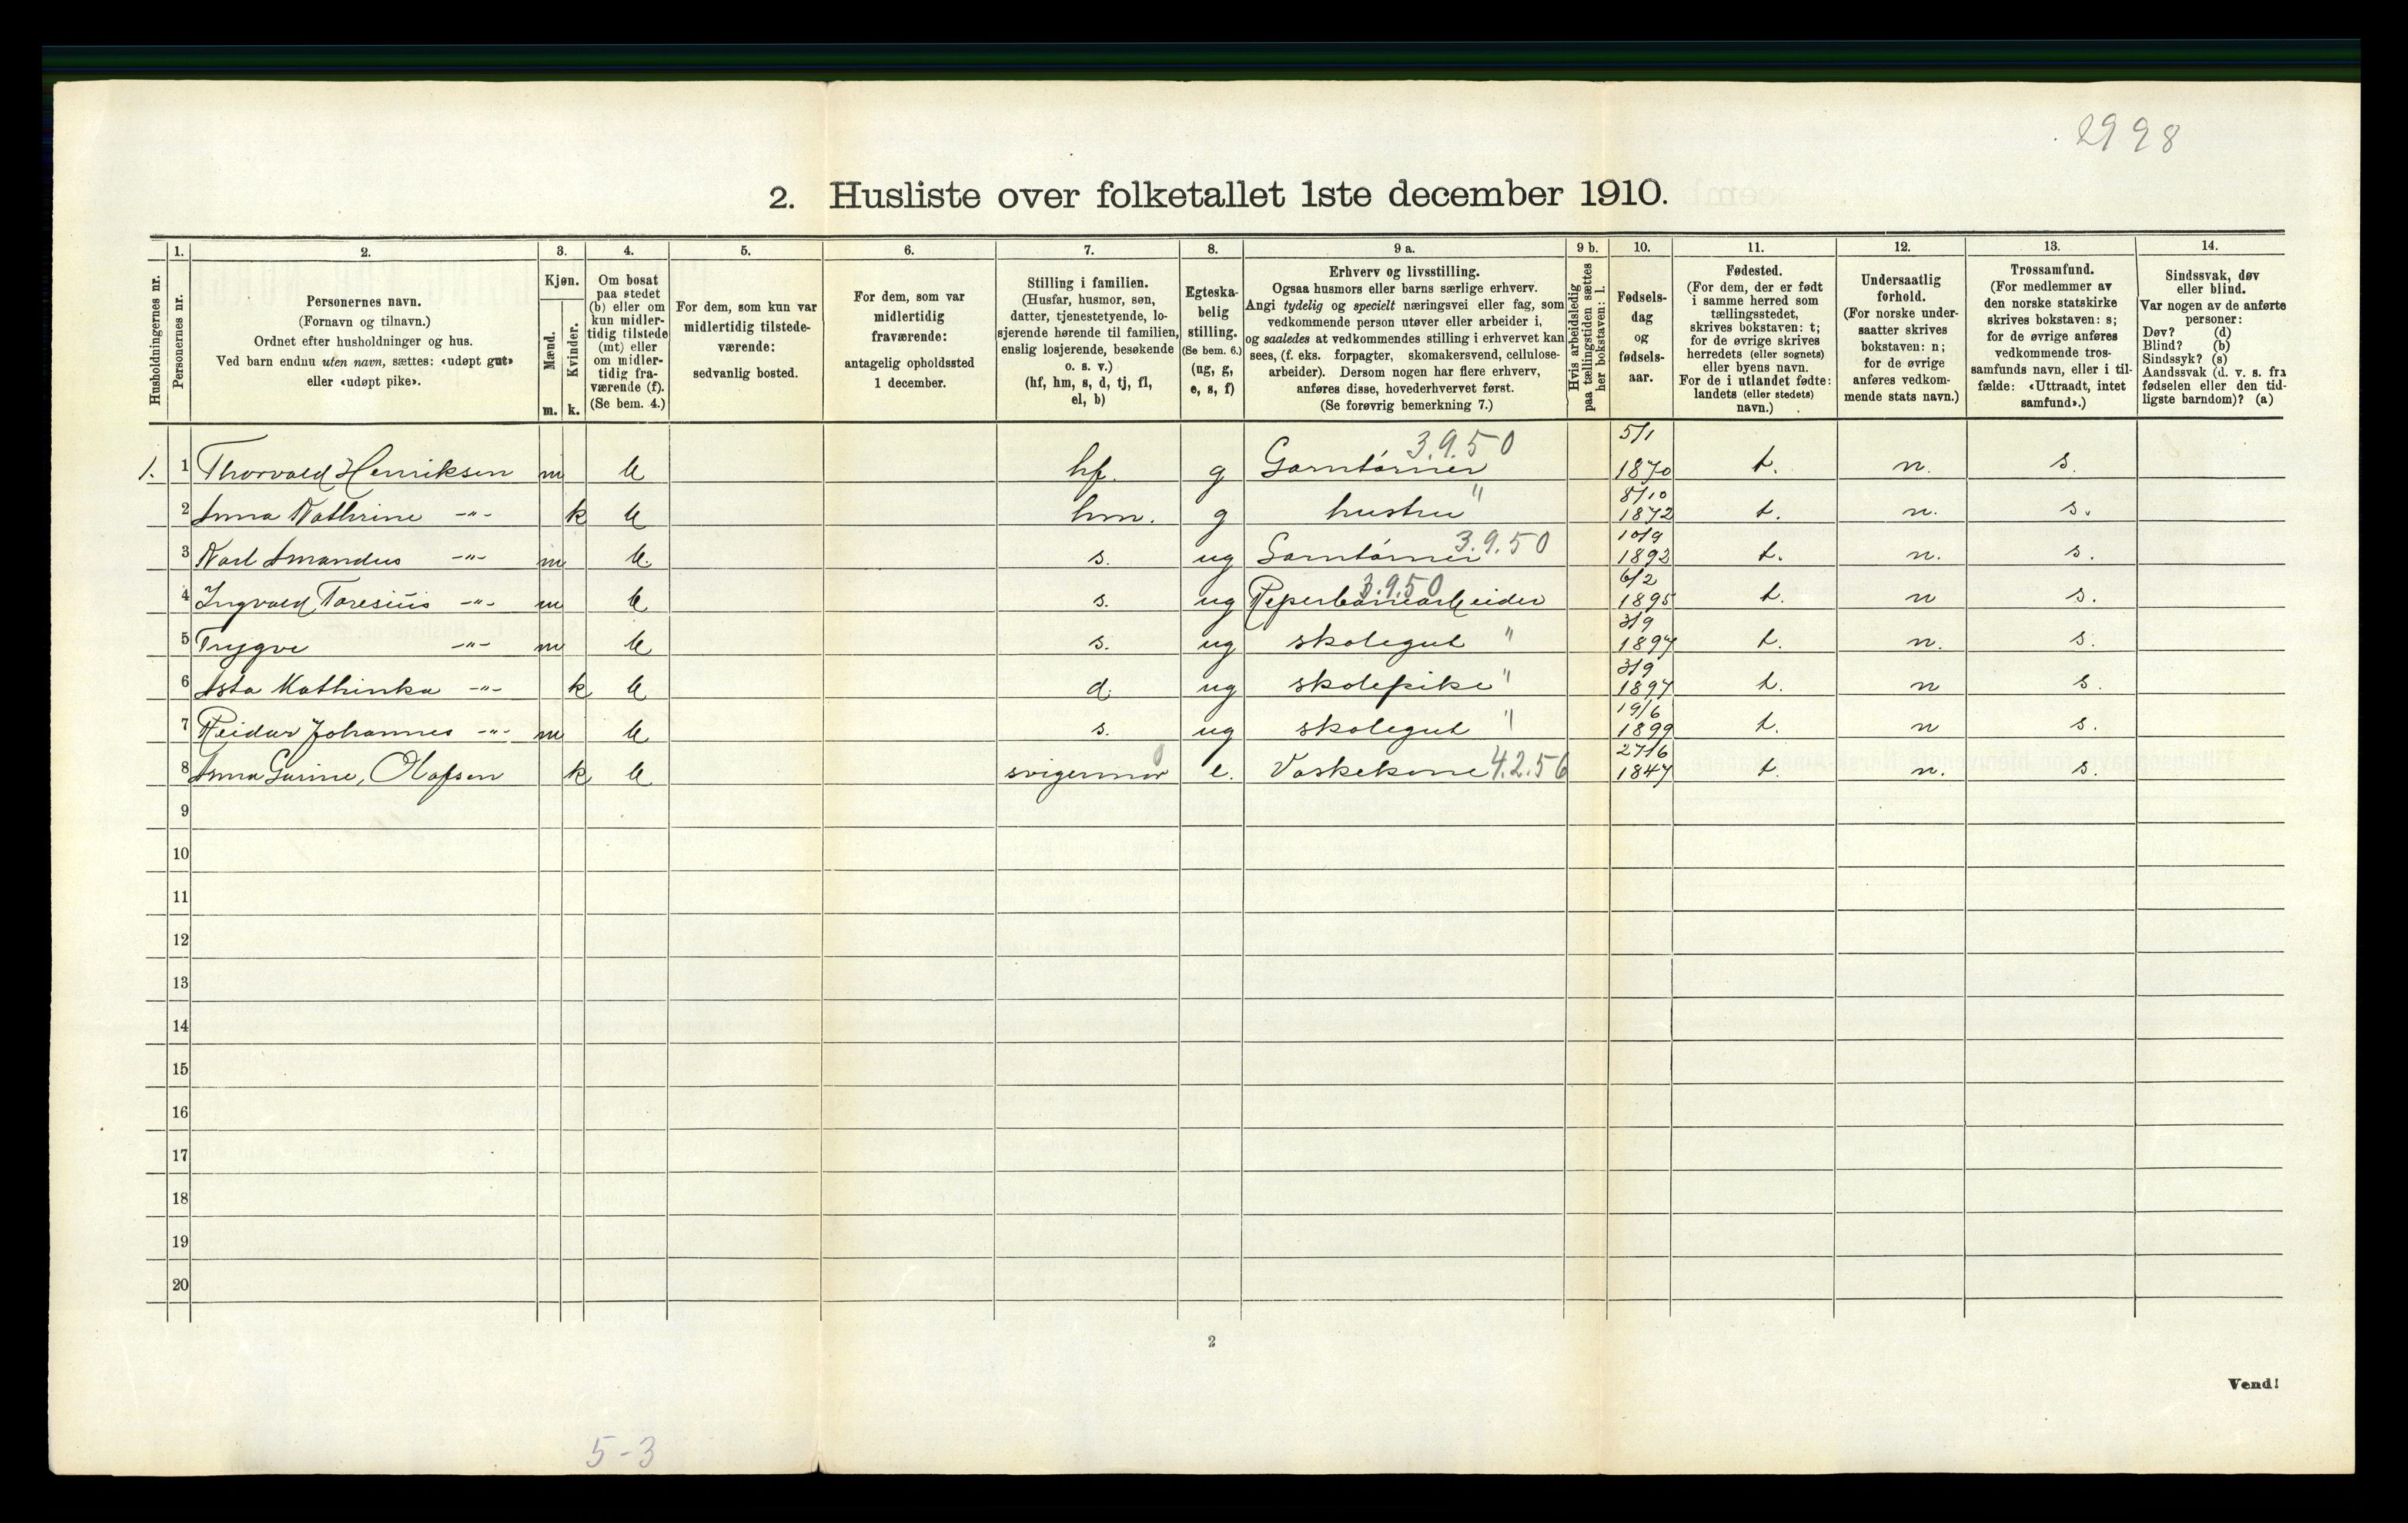 2998
2. Husliste over folketallet 1ste december 1910.
Husholdningernes nr.
1.
Personernes nr.
2.
Personernes navn.
(Fornavn og tilnavn.)
Ordnet efter husholdninger og hus.
Ved barn endnu uten navn, sættes: «udøpt gut»
eller «udøpt pike».
3.
Kjøn.
Mænd.
Kvinder.
m. k.
4.
Om bosat
paa stedet
(b) eller om
kun midler-
tidig tilstede
(mt) eller
om midler-
tidig fra-
værende (f).
(Se bem. 4.)
5.
For dem, som kun var
midlertidig tilstede-
værende:
sedvanlig bosted.
6.
For dem, som var
midlertidig
fraværende:
antagelig opholdssted
1 december.
7.
Stilling i familien.
(Husfar, husmor, søn,
datter, tjenestetyende, lo-
sjerende hørende til familien,
enslig losjerende, besøkende
o. s. v.)
(hf, hm, s, d, tj, fl,
el, b)
8.
Egteska-
belig
stilling.
(Se bem. 6.)
(ug, g,
e, s, f)
9 a.
Erhverv og livsstilling.
Ogsaa husmors eller barns særlige erhverv.
Angi tydelig og specielt næringsvei eller fag, som
vedkommende person utøver eller arbeider i,
og saaledes at vedkommendes stilling i erhvervet kan
sees, (f. eks. forpagter, skomakersvend, cellulose-
arbeider). Dersom nogen har flere erhverv,
anføres disse, hovederhvervet først.
(Se forøvrig bemerkning 7.)
9 b.
Hvis arbeidsledig
paa tællingstiden sættes
her bokstaven: l.
10.
Fødsels-
dag
og
fødsels-
aar.
11.
Fødested.
(For dem, der er født
i samme herred som
tællingsstedet,
skrives bokstaven: t;
for de øvrige skrives
herredets (eller sognets)
eller byens navn.
For de i utlandet fødte:
landets (eller stedets)
navn.)
12.
Undersaatlig
forhold.
(For norske under-
saatter skrives
bokstaven: n;
for de øvrige
anføres vedkom-
mende stats navn.)
13.
Trossamfund.
(For medlemmer av
den norske statskirke
skrives bokstaven: s;
for de øvrige anføres
vedkommende tros-
samfunds navn, eller i til-
fælde: «Uttraadt, intet
samfund».)
14.
Sindssvak, døv
eller blind.
Var nogen av de anførte
personer:
Døv? (d)
Blind? (b)
Sindssyk? (s)
Aandssvak (d. v. s. fra
fødselen eller den tid-
ligste barndom)? (a)
1. 1 Thorvald Henriksen m b hf. g Garntørner 3.9.50 5/1 1870 t. n. s.
2 Anna Kathrine -"- k b hm. g hustru " 8/10 1872 t. n. s.
3 Karl Amandus -"- m b. s. ug Garntørner 3.9.50 10/9 1892 t. n. s.
4 Ingvald Toresius -"- m b s. ug Reperbanearbeider 3.9.50 6/2 1895 t. n s.
5 Trygve -"- m b s. ug skolegut " 3/9 1897 t. n. s.
6 Asta Kathinka -"- k b d. ug skolepike " 3/9 1897 t. n s.
7 Reidar Johannes -"- m b s. ug skolegut " 19/6 1899 t. n s.
8 Anna Gurine, Olafsen k b svigermor 0 e. Vaskekone 4.2.56 27/6 1847 t. n. s.
9
10
11
12
13
14
15
16
17
18
19
20
2
Vend!
5-3